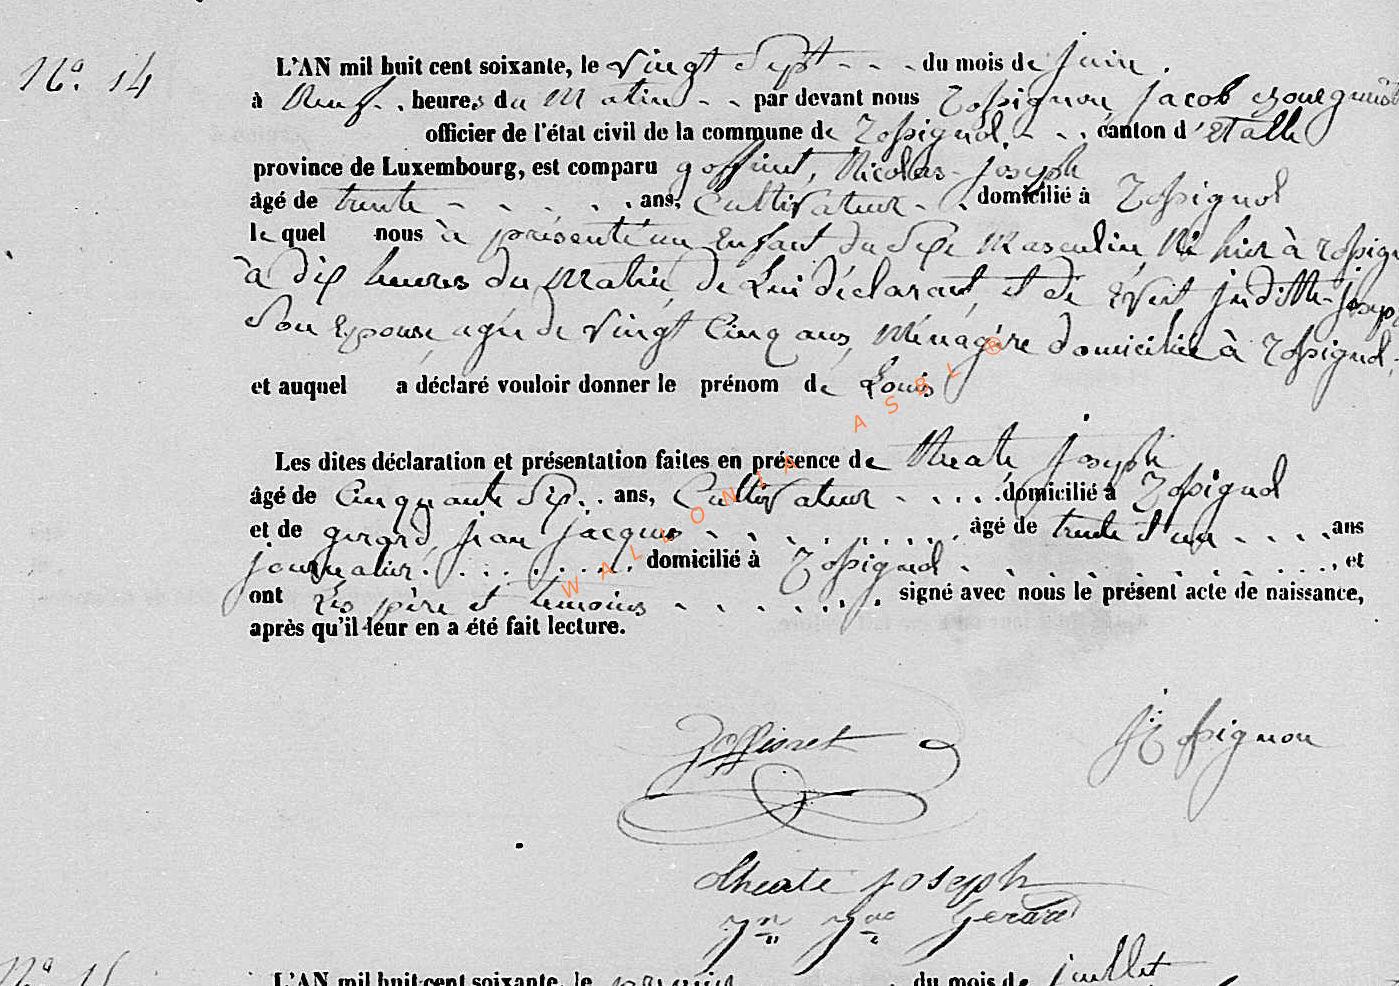 N° 14
L'AN mil huit cent soixante, le vingt sept - - - du mois de juin.
à neuf . . heures du matin - - par devant nous Rossignon, Jacob bourgmest
officier de l'état civil de la commune de Rossignol - . . canton d'Etalle
province de Luxembourg, est comparu goffinet, Nicolas-Joseph
âgé de trente - - - . . . ans, Cultivateur - . domicilié à Rossignol
lequel nous à présenté un Enfant du Sexe Masculin, Né hier à Rossign
à dix heures du Matin, de Lui déclarant, et de Judith-Josep
Son Epouse agée de vingt Cinq ans, Ménagère domiciliée à Rossignol,
et auquel a déclaré vouloir donner le prénom de Louis
Les dites déclaration et présentation faites en présence de Theate Joseph
âgé de Cinquante Six . . ans, Cultivateur - . . . . domicilié à Rossignol
et de gerard, jean jacques - - . . . . . . . âgé de trente et un - . . . ans
journalier. . . . . . . . . domicilié à Rossignol - . . . . . . . . . . , et
ont Les père et temoins - . . . . . . signé avec nous le présent acte de naissance,
après qu'il leur en a été fait lecture.
WALLONIA ASBL ®
Goffinet
JRossignon
theate joseph
Jn Jac Gerard
N° 15
L'AN mil huit cent soixante, le premier . du mois de juillet